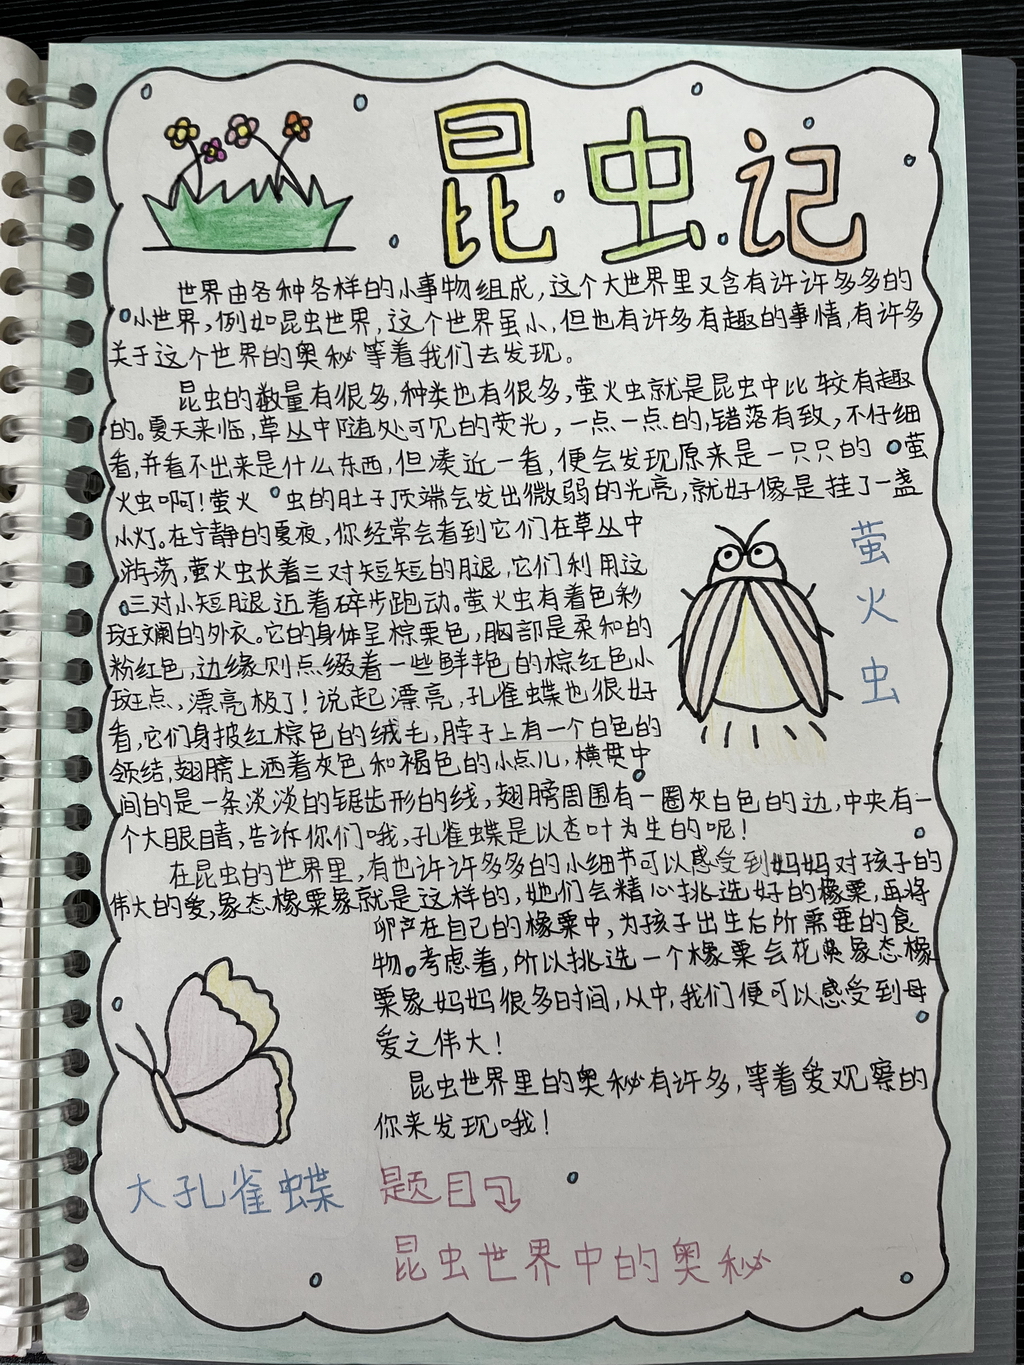 昆虫记
世界由各种各样的小事物组成，这个大世界里又含有许许多多的
小世界，例如昆虫世界，这个世界虽小，但也有许多有趣的事情，有许多
关于这个世界的奥秘等着我们去发现。
昆虫的数量有很多，种类也有很多，萤火虫就是昆虫中比较有趣
的。夏天来临，草丛中随处可见的荧光，一点一点的，错落有致，不仔细
看，并看不出来是什么东西，但凑近一看，便会发现原来是一只只的萤
火虫啊！萤火虫的肚子顶端会发出微弱的光亮，就好像是挂了一盏
小灯。在宁静的夏夜，你经常会看到它们在草丛中
游荡，萤火虫长着三对短短的腿，它们利用这
三对小短腿近着碎步跑动。萤火虫有着色彩
斑斓的外衣。它的身体呈棕栗色，胸部是柔和的
粉红色，边缘则点缀着一些鲜艳色的棕红色小
斑点，漂亮极了！说起漂亮，孔雀蝶也很好
看，它们身披红棕色的绒毛，脖子上有一个白色的
领结，翅膀上洒着灰色和褐色的小点儿，横贯中
间的是一条淡淡的锯齿形的线，翅膀周围有一圈灰白色的边，中央有一
个大眼睛，告诉你们哦，孔雀蝶是以杏叶为生的呢！
在昆虫的世界里，有也许许多多的小细节可以感受到妈妈对孩子的
伟大的爱，象态橡栗象就是这样的，她们会精心挑选好的橡栗，再将
卵产在自己的橡栗中，为孩子出生后所需要的食
物。考虑着，所以挑选一个橡栗会花费象态橡
栗象妈妈很多时间，从中，我们便可以感受到母
爱之伟大！
昆虫世界里的奥秘有许多，等着爱观察的
你来发现哦！
萤火虫
大孔雀蝶
题目
昆虫世界中的奥秘